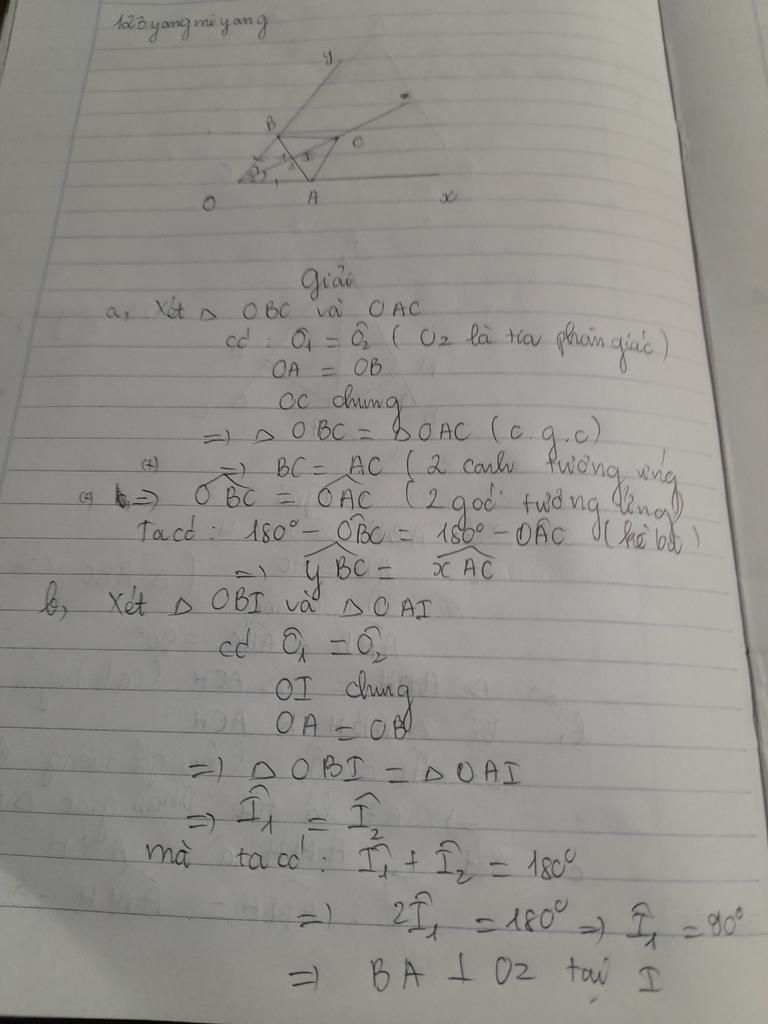 123yangmiyang
y
B
C
I
O
A
x
Giải
a, Xét △ OBC và OAC
có : Ô1 = Ô2 ( Oz là tia phân giác )
OA = OB
OC chung
=> △ OBC = △ OAC ( c.g.c )
=> BC = AC ( 2 cạnh tương ứng
=> OBC = OAC ( 2 góc tương ứng )
Ta có : 180° - OBC = 180° - OAC ( kề bù )
=> yBC = xAC
b, Xét △ OBI và △ OAI
có Ô1 = Ô2
OI chung
OA = OB
=> △ OBI = △ OAI
=> Î1 = Î2
mà ta có : Î1 + Î2 = 180°
=> 2Î1 = 180° => Î1 = 90°
=> BA ⊥ Oz tại I